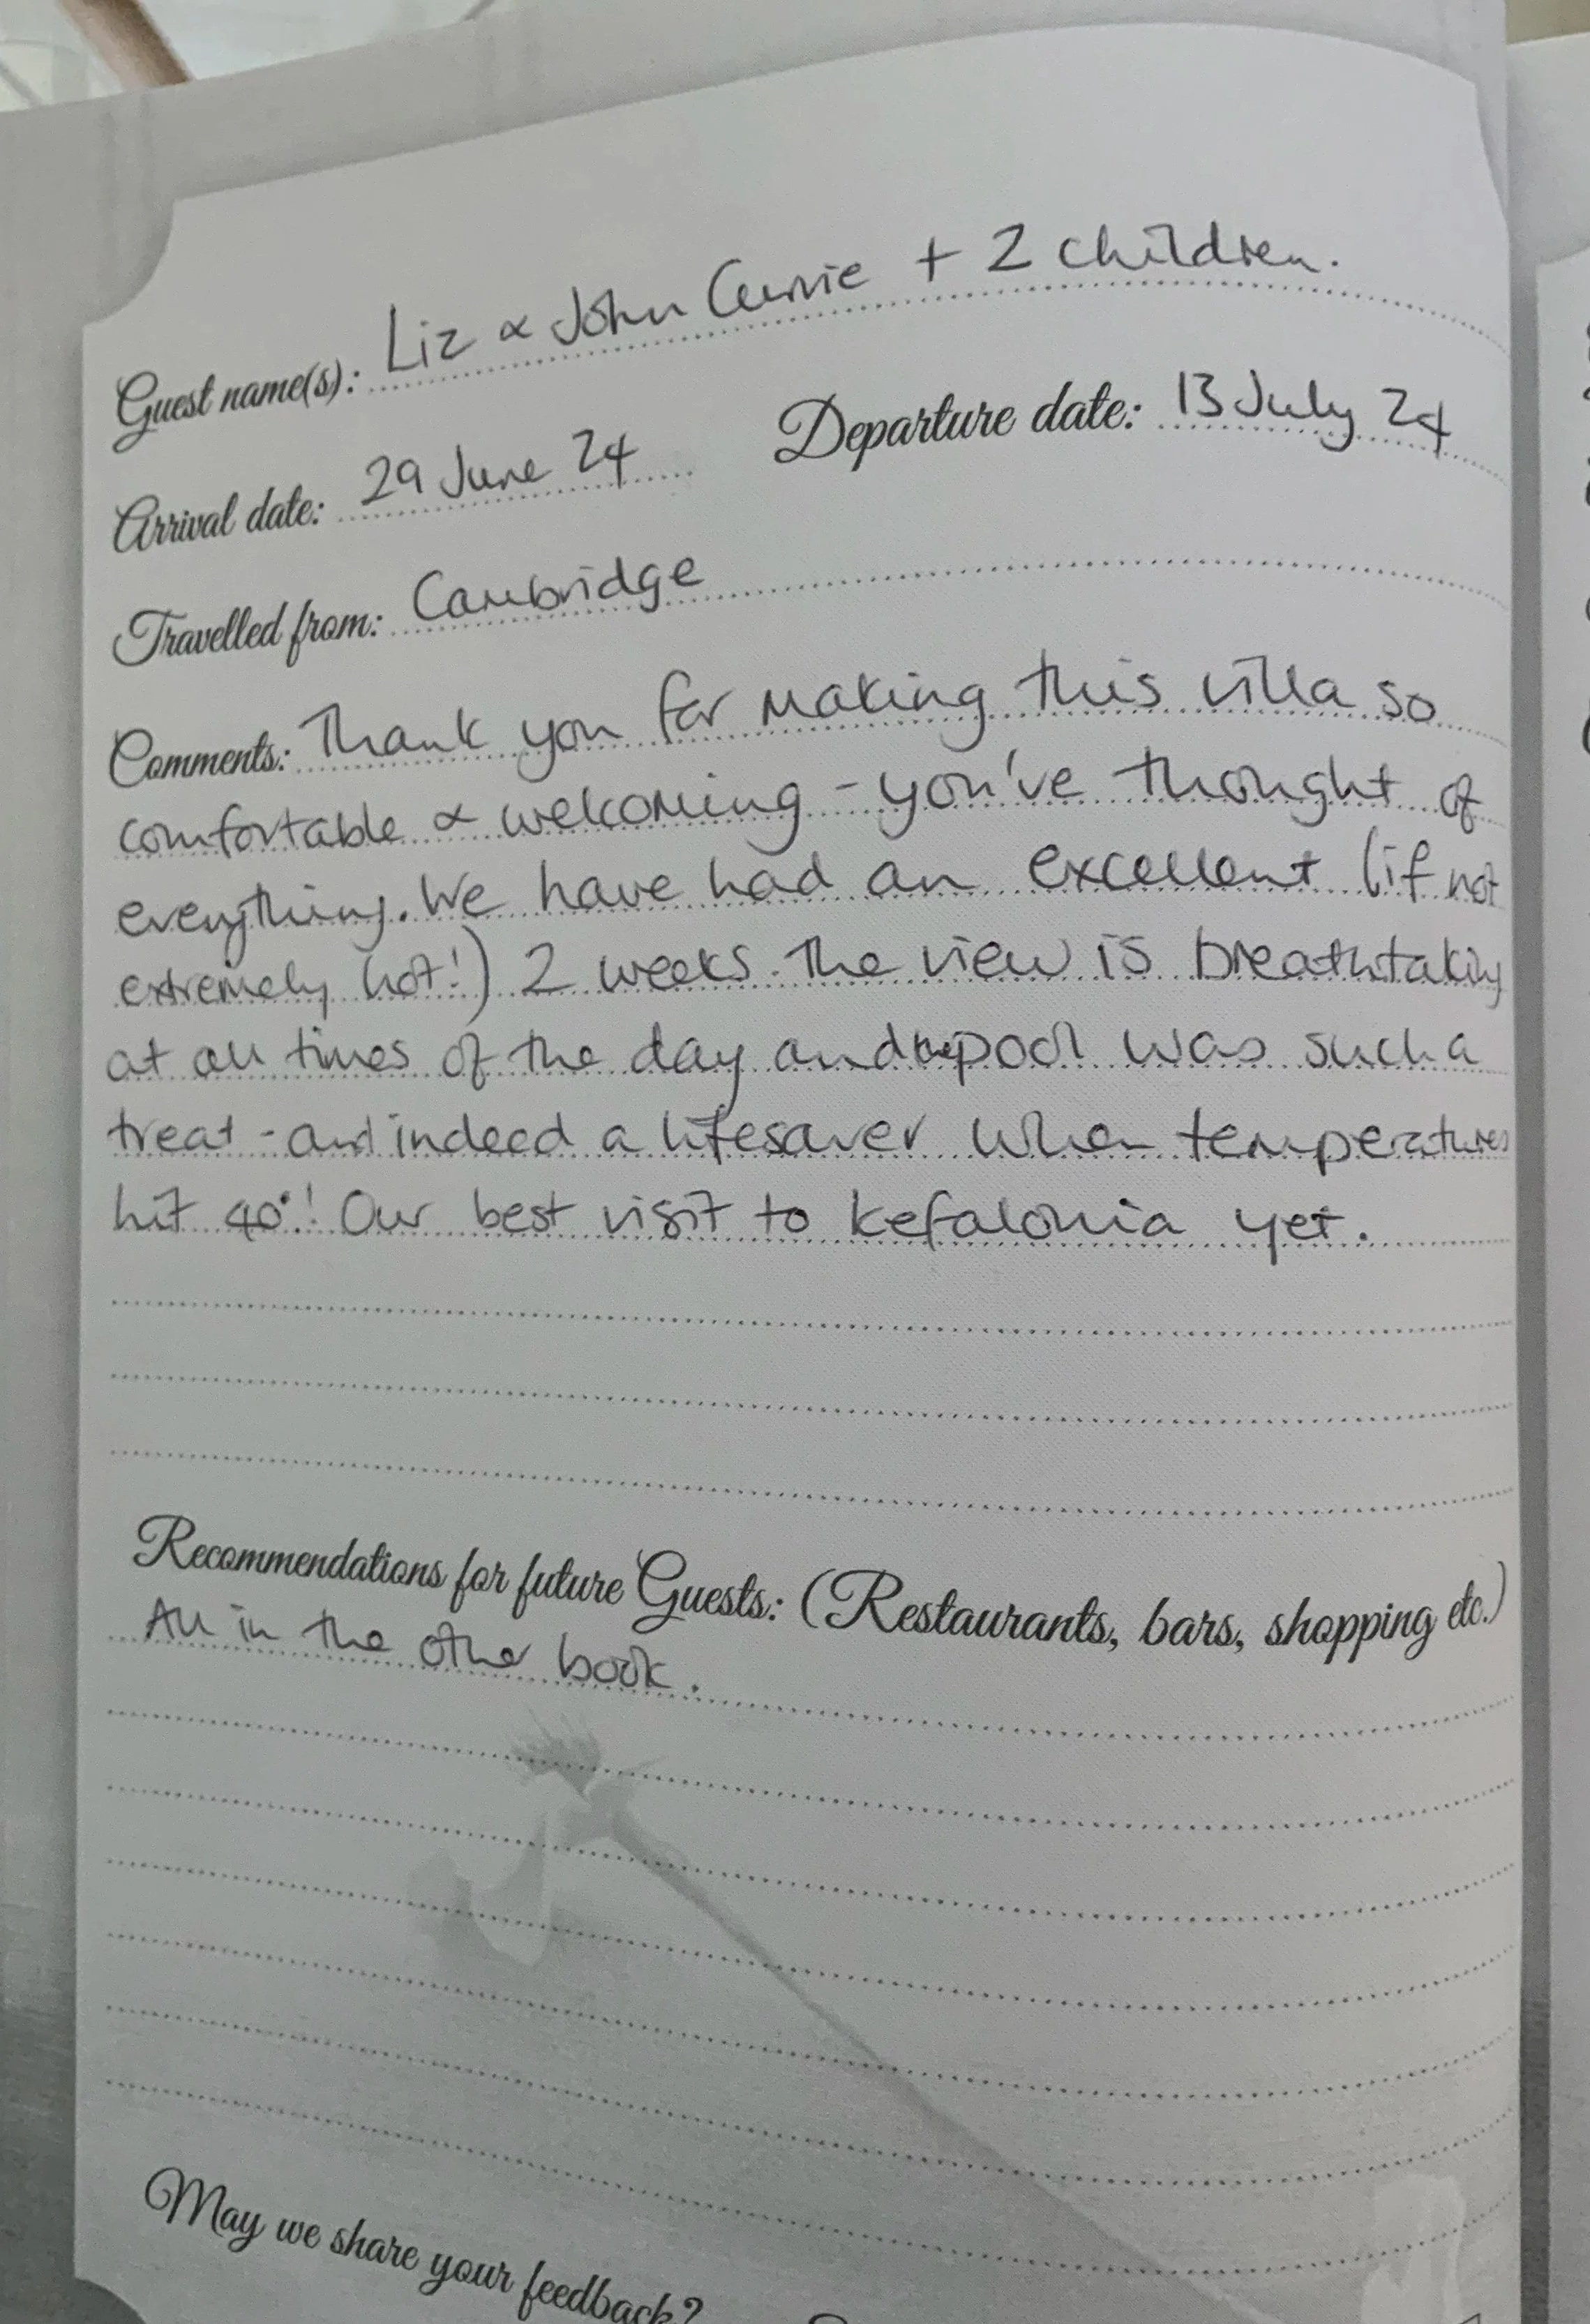 Guest name(s): Liz & John Currie + 2 children.
Arrival date: 29 June 24 Departure date: 13 July 24
Travelled from: Cambridge
Comments: Thank you for making this villa so
comfortable & welcoming - you've thought of
everything. We have had an excellent (if not
extremely hot!) 2 weeks. The view is breathtaking
at all times of the day and the pool was such a
treat - and indeed a lifesaver when temperatures
hit 40°! Our best visit to Kefalonia yet.
Recommendations for future Guests: (Restaurants, bars, shopping etc.)
All in the other book.
May we share your feedback?